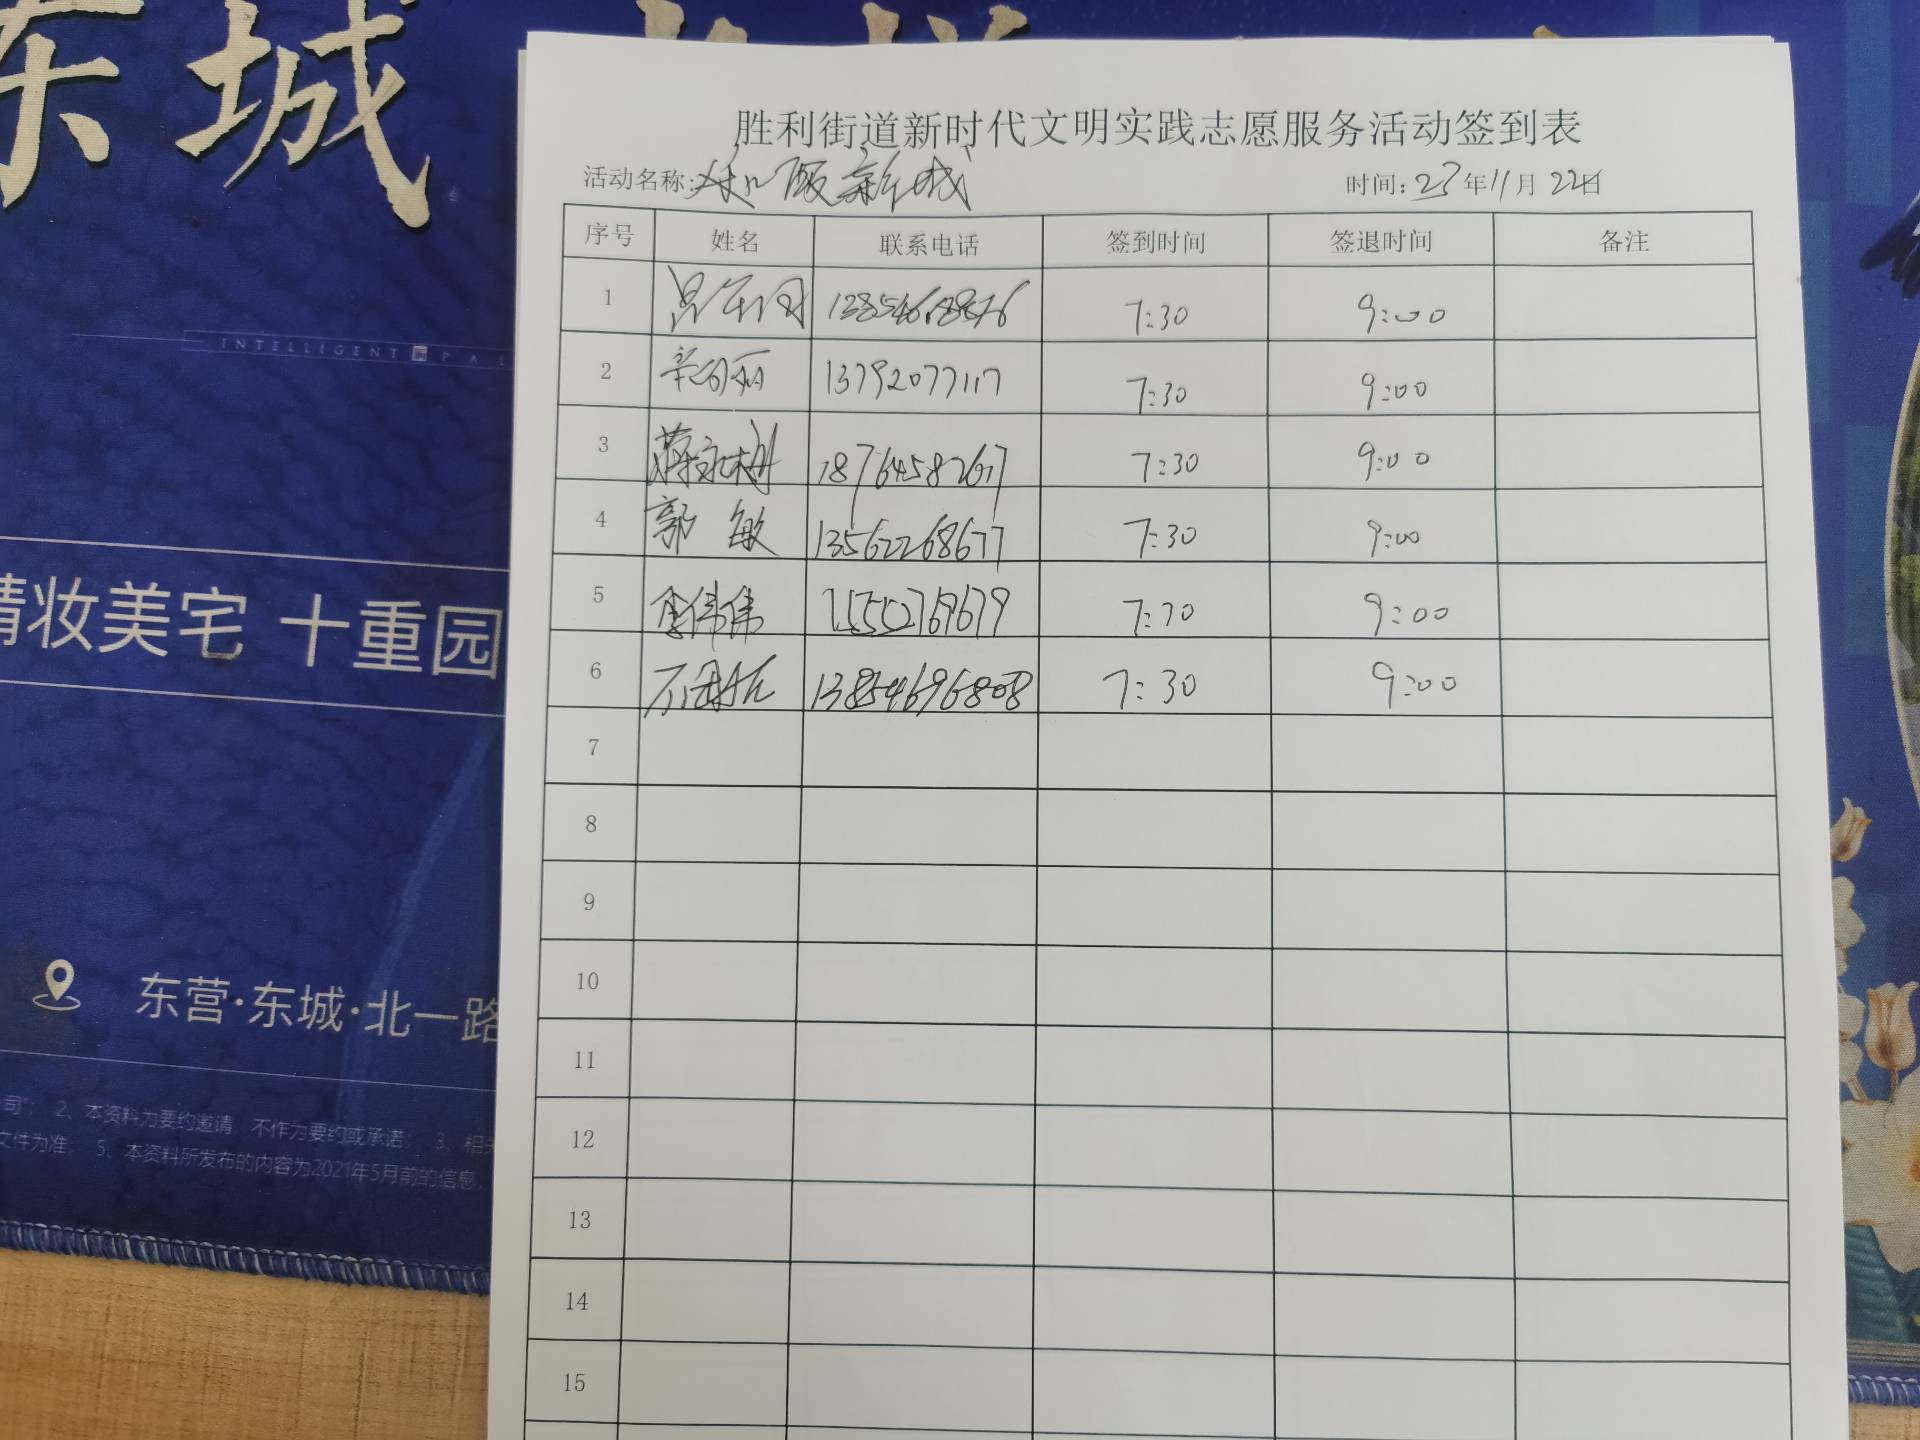 东城
INTELLIGENT PAL
精妆美宅 十重园
东营·东城·北一路
司"; 2、本资料为要约邀请,不作为要约或承诺; 3、相关
文件为准; 5、本资料所发布的内容为2021年5月前的信息,
胜利街道新时代文明实践志愿服务活动签到表
活动名称: 新城 时间:23年11月22日
序号 姓名 联系电话 签到时间 签退时间 备注
1 7:30 9:00
2 13792077117 7:30 9:00
3 18764582677 7:30 9:00
4 郭敏 13562268677 7:30 9:00
5 李伟伟 15552769679 7:30 9:00
6 13854696808 7:30 9:00
7
8
9
10
11
12
13
14
15